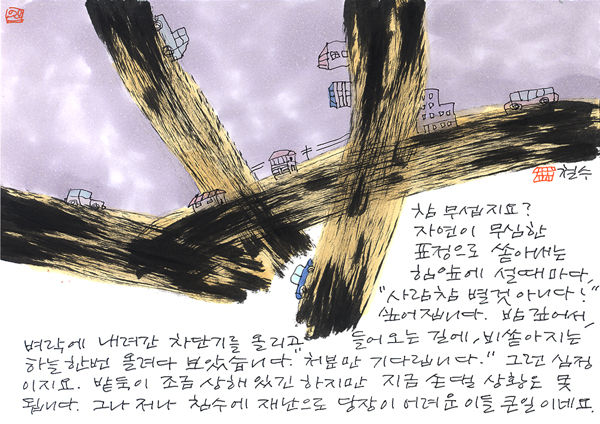 철수
참 무섭지요?
자연이 무심한
표정으로 쏟아내는
힘앞에 설때마다,
"사람참 별것 아니다!"
싶어집니다. 밤 깊어서,
벼락에 내려간 차단기를 올리고, 들어오는 길에, 비쏟아지는
하늘한번 올려다 보았습니다. "처분만 기다립니다." 그런 심정
이지요. 밭둑이 조금 상해 있긴 하지만 지금 손댈 상황은 못
됩니다. 그나 저나 침수에 재난으로 당장이 어려운 이들 큰일이네요.